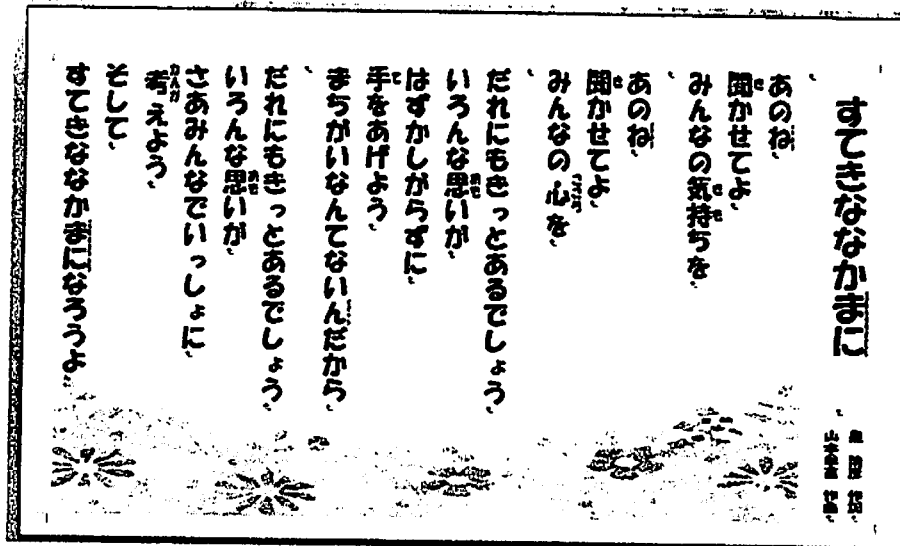 すてきななかまに
あのね
聞かせてよ
みんなの気持ちを
あのね
聞かせてよ
みんなの心を
だれにもきっとあるでしょう
いろんな思いが
はずかしがらずに
手をあげよう
まちがいなんてないんだから
だれにもきっとあるでしょう
いろんな思いが
さあみんなでいっしょに
考えよう
そして
すてきななかまになろうよ